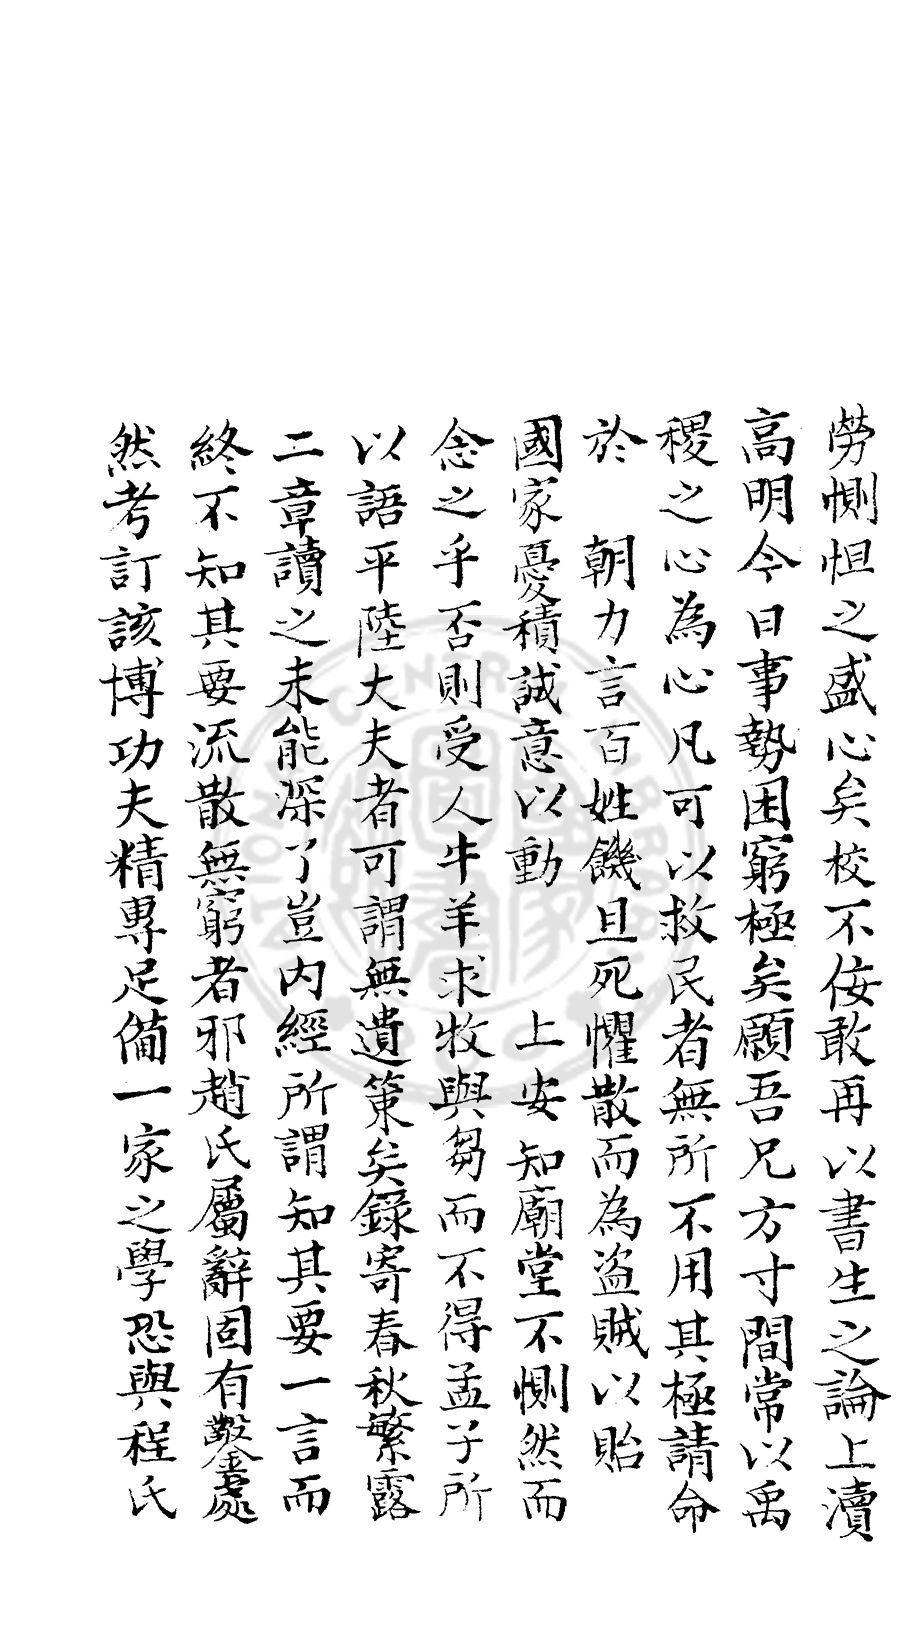 勞惻怛之盛心矣校不佞敢再以書生之論上瀆
高明今日事勢困窮極矣願吾兄方寸間常以禹
稷之心為心凡可以救民者無所不用其極請命
於　朝力言百姓饑且死懼散而為盜賊以貽
國家憂積誠意以動　上安知廟堂不惻然而
念之乎否則受人牛羊求牧與芻而不得孟子所
以語平陸大夫者可謂無遺策矣錄寄春秋繁露
二章讀之未能深了豈内經所謂知其要一言而
終不知其要流散無窮者邪趙氏屬辭固有鑿處
然考訂該博功夫精專足備一家之學恐與程氏